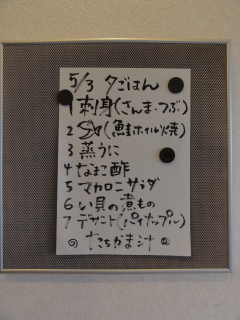 5/3 夕ごはん
1 刺身(さんま・つぶ)
2 (鮭ホイル焼)
3 蒸うに
4 なまこ酢
5 マカロニサラダ
6 い貝の煮もの
7 デザート(パイナップル)
たちかま汁